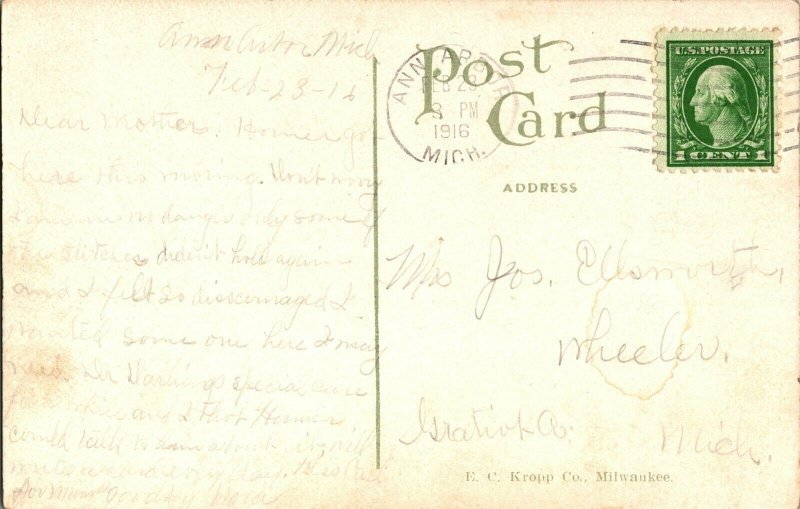 Ann Arbor Mich
Feb-23-16
Dear Mother. Homer got
here this moring. Don't worry
I am in no danger only some of
the stitches didn't hold again
and I felt so disscouraged I
wanted some one here I may
need Dr Darlings special care
for a while and I that Homer
could talk to him about it. will
write a card every day.
for Mama Goodby
Post
Card
ANN ARBOR
FEB 23
8 PM
1916
MICH.
U.S. POSTAGE
1 CENT 1
ADDRESS
Mrs Jos. Ellsworth,
Wheeler.
Gratiot Co. Mich.
E. C. Kropp Co., Milwaukee.